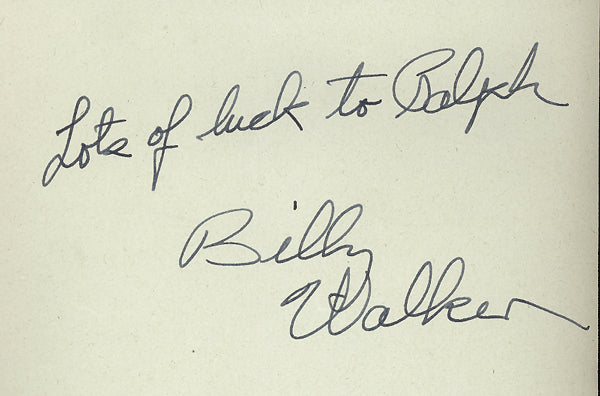 Lots of luck to Ralph
Billy
Walker